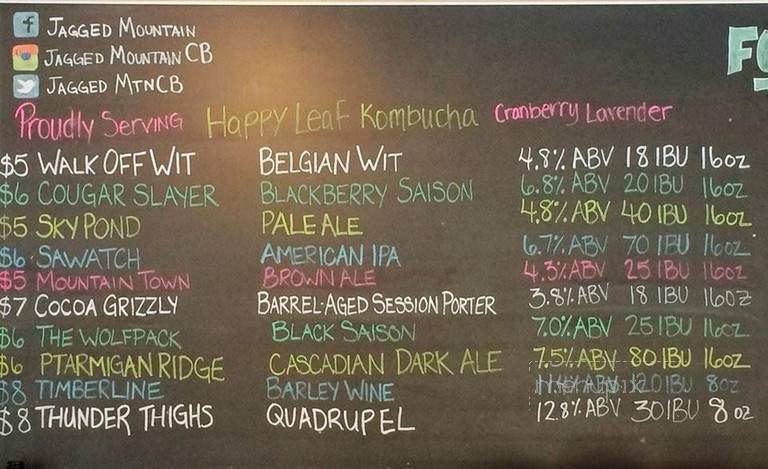 Jagged Mountain
Jagged Mountain CB
Jagged MtnCB
Proudly Serving Happy Leaf Kombucha Cranberry Lavender
$5 WALK OFF WIT BELGIAN WIT 4.8% ABV 18 IBU 16oz
$6 COUGAR SLAYER BLACKBERRY SAISON 6.8% ABV 20 IBU 16oz
$5 SKY POND PALE ALE 4.8% ABV 40 IBU 16oz
$6 SAWATCH AMERICAN IPA 6.7% ABV 70 IBU 16oz
$5 MOUNTAIN TOWN BROWN ALE 4.3% ABV 25 IBU 16oz
$7 COCOA GRIZZLY BARREL-AGED SESSION PORTER 3.8% ABV 18 IBU 16oz
$6 THE WOLFPACK BLACK SAISON 7.0% ABV 25 IBU 16oz
$6 PTARMIGAN RIDGE CASCADIAN DARK ALE 7.5% ABV 80 IBU 16oz
$8 TIMBERLINE BARLEY WINE ABV 120 IBU 8oz
$8 THUNDER THIGHS QUADRUPEL 12.8% ABV 30 IBU 8oz